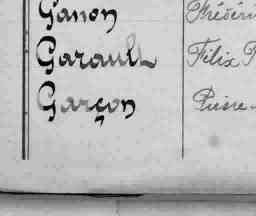 Ganon Frédéri
Garault Félix P
Garçon Pierre